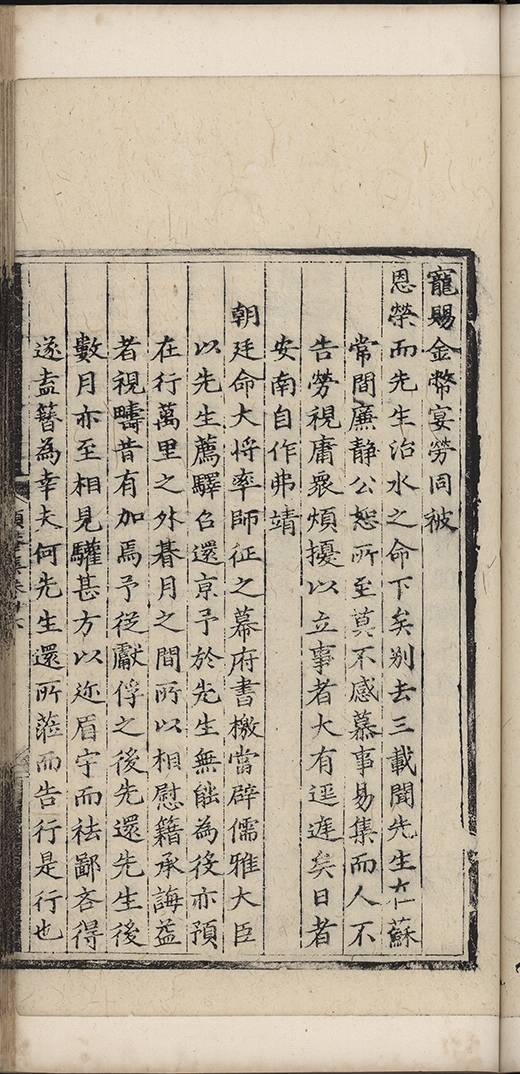 寵賜金幣宴勞同被
恩榮而先生治水之命下矣别去三載聞先生在蘇
常間廉静公恕所至莫不感慕事易集而人不
告勞視庸衆煩擾以立事者大有逕遅矣日者
安南自作弗靖
朝廷命大将率師征之幕府書檄當辟儒雅大臣
以先生薦驛召還京予於先生無能為役亦預
在行萬里之外朞月之間所以相慰籍承誨益
者視疇昔有加焉予從獻俘之後先還先生後
數月亦至相見驩甚方以迩眉宇而祛鄙吝得
遂盍簪為幸夫何先生還所蒞而告行是行也
頤菴集卷